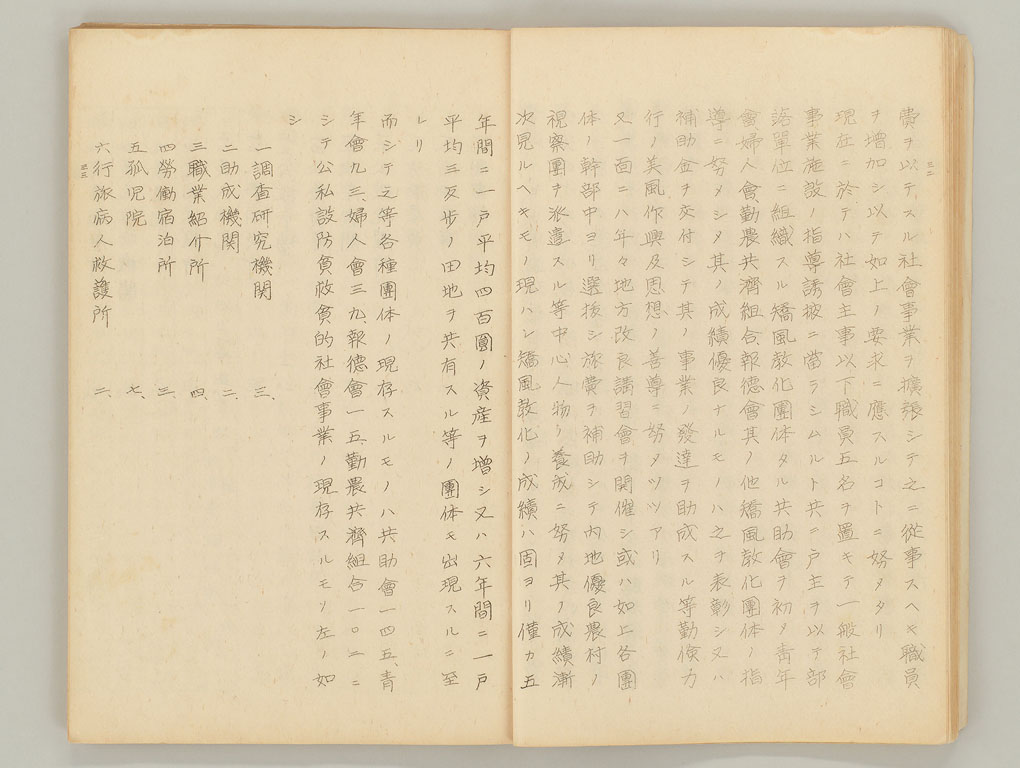 三二
費ヲ以テスル社會事業ヲ擴張シテ之ニ從事スヘキ職員
ヲ增加シ以テ如上ノ要求ニ應スルコトニ努メタリ
現在ニ於テハ社會主事以下職員五名ヲ置キテ一般社會
事業施設ノ指導誘掖ニ當ラシムルト共ニ戶主ヲ以テ部
落單位ニ組織スル矯風敎化團体タル共助會ヲ初メ靑年
會婦人會、勤農共濟組合、報德會其ノ他矯風敎化團体ノ指
導ニ努メシメ其ノ成績優良ナルモノハ之ヲ表彰シ又ハ
補助金ヲ交付シテ其ノ事業ノ發達ヲ助成スル等勤儉力
行ノ美風作興及思想ノ善導ニ努メツツアリ
又一面ニハ年々地方改良講習會ヲ開催シ或ハ如上各團
体ノ幹部中ヨリ選拔シ旅費ヲ補助シテ內地優良農村ノ
視察團ヲ派遣スル等中心人物ノ養成ニ努メ其ノ成績漸
次見ルヘキモノ現ハレ矯風敎化ノ成績ハ固ヨリ僅カ五
年間ニ一戶平均四百圓ノ資產ヲ增シ又ハ六年間ニ一戶
平均三反步ノ田地ヲ共有スル等ノ團体モ出現スルニ至
レリ
而シテ之等各種團体ノ現存スルモノハ共助會一四五、靑
年會九三、婦人會三九、報德會一五、勤農共濟組合一〇二ニ
シテ公私設防貧救貧的社會事業ノ現存スルモノ左ノ如
シ
一調查硏究機関 三、
二助成機関 二、
三職業紹介所 四、
四勞働宿泊所 三、
五孤児院 七、
六行旅病人救護所 二、
三三